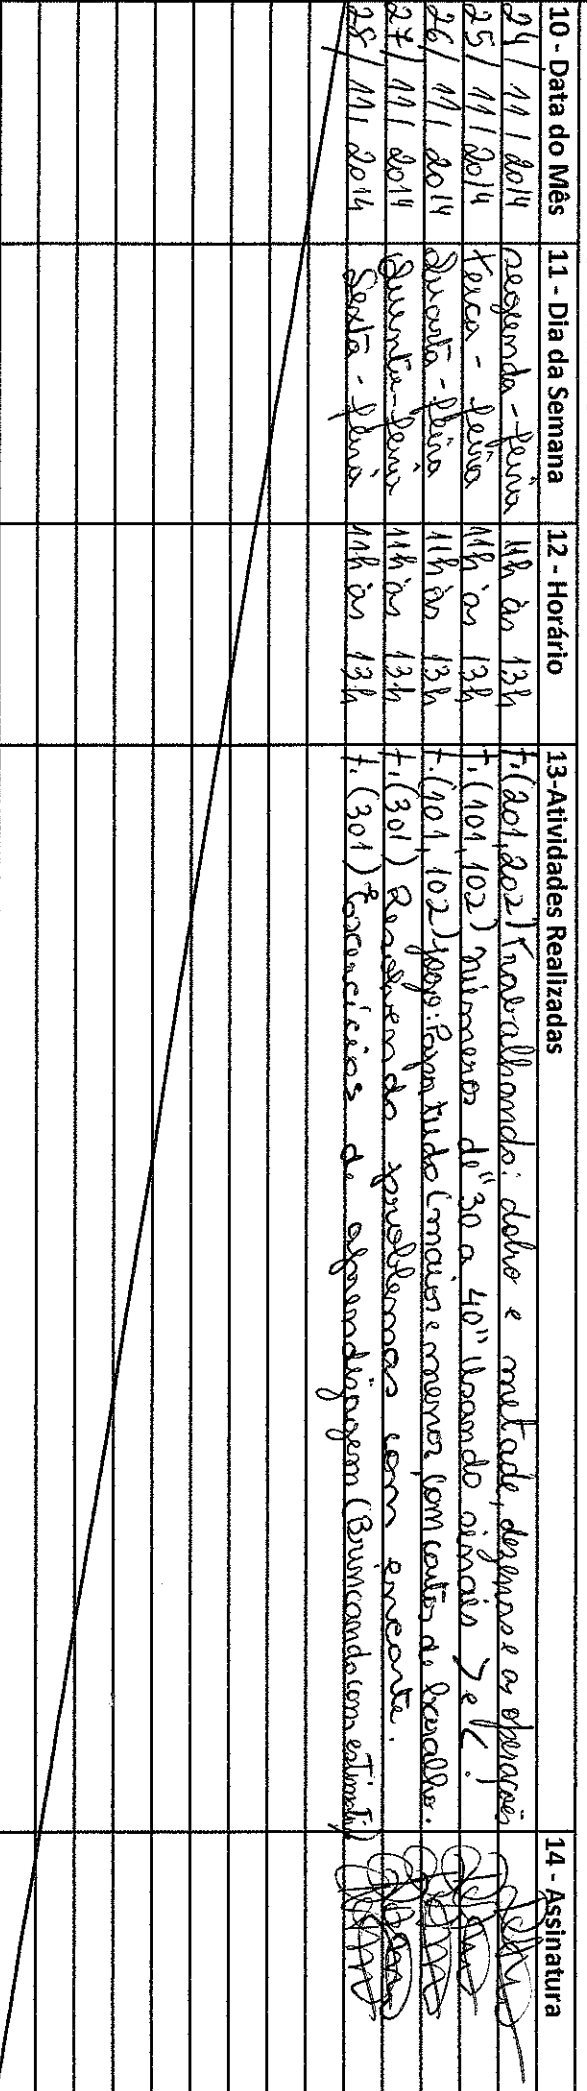 10 - Data do Mês 11 - Dia da Semana 12 - Horário 13-Atividades Realizadas 14 - Assinatura
24/11/2014 segunda-feira 11h às 13h t.(201,202) Trabalhando: dobro e metade, desenhos e as operações
25/11/2014 terça-feira 11h às 13h t.(101,102) números de "30 a 40" Usando sinais > e <!
26/11/2014 Quarta-feira 11h às 13h t.(101,102) jogo: Papa tudo (maior e menor) com cartas de baralho.
27/11/2014 Quinta-feira 11h às 13h t.(301) Resolvendo problemas com encarte.
28/11/2014 Sexta-feira 11h às 13h t.(301) Exercícios de aprendizagem (Brincando com estimativa)